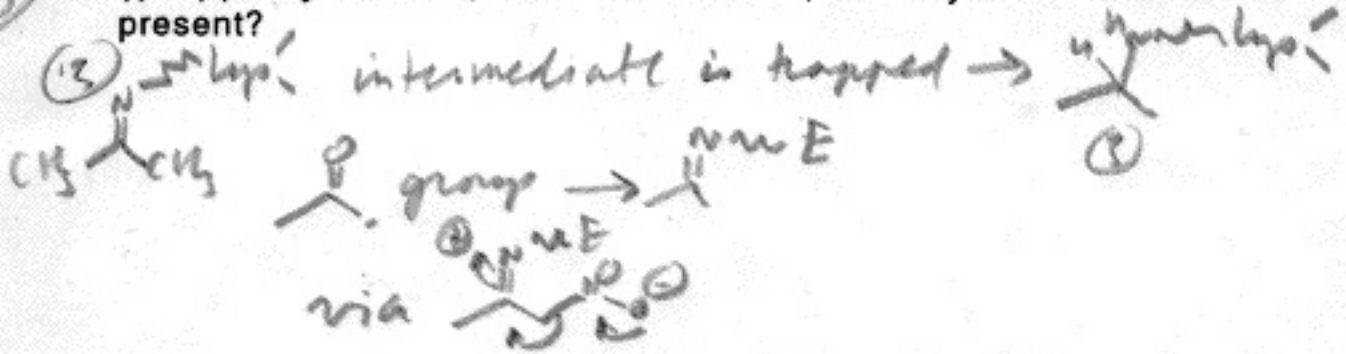 present?
③ Lys intermediate is trapped → N Lys
N
CH3 CH3 ③
O group → N E
⊕ N E
via O ⊖